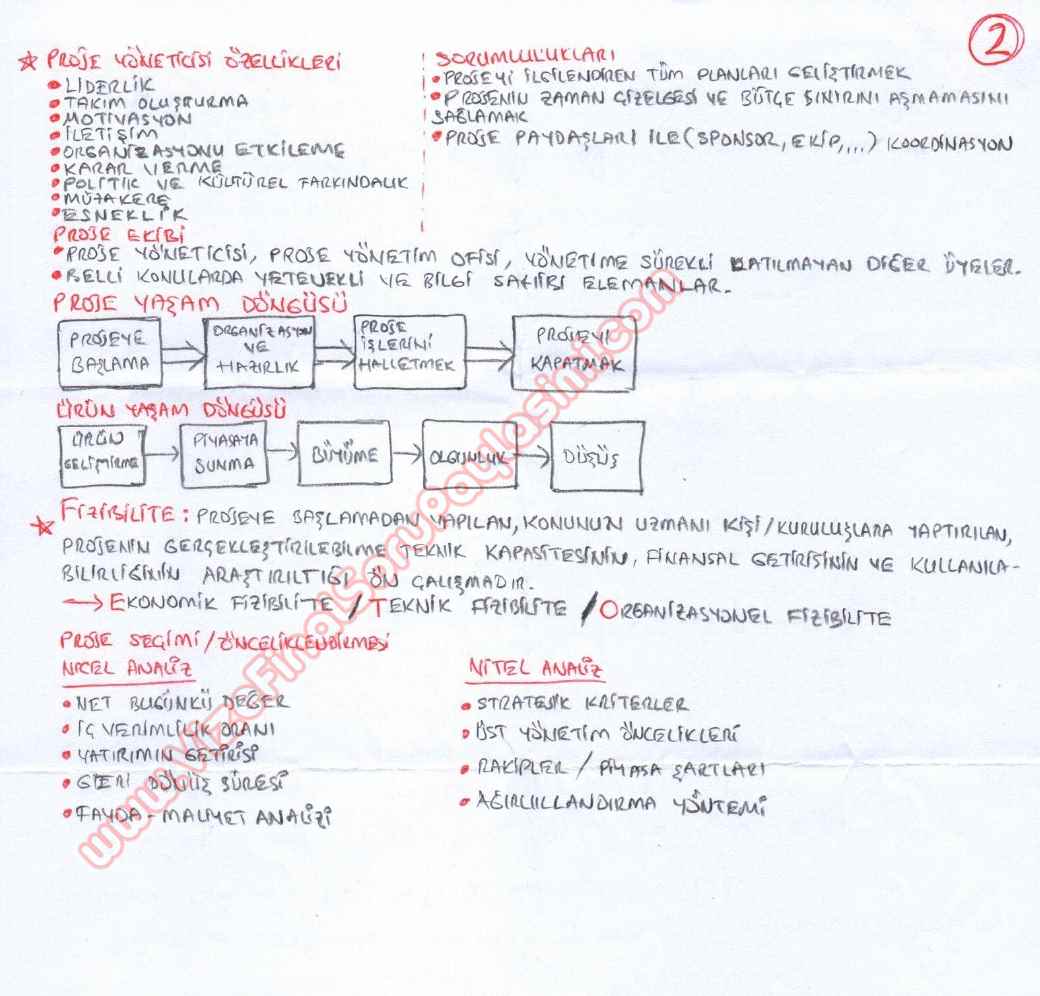 2
★ PROJE YÖNETİCİSİ ÖZELLİKLERİ
• LİDERLİK
• TAKIM OLUŞTURMA
• MOTİVASYON
• İLETİŞİM
• ORGANİZASYONU ETKİLEME
• KARAR VERME
• POLİTİK VE KÜLTÜREL FARKINDALIK
• MÜZAKERE
• ESNEKLİK
SORUMLULUKLARI
• PROJEYİ İLGİLENDİREN TÜM PLANLARI GELİŞTİRMEK
• PROJENİN ZAMAN ÇİZELGESİ VE BÜTÇE SINIRINI AŞMAMASINI
SAĞLAMAK
• PROJE PAYDAŞLARI İLE (SPONSOR, EKİP,...) KOORDİNASYON
PROJE EKİBİ
• PROJE YÖNETİCİSİ, PROJE YÖNETİM OFİSİ, YÖNETİME SÜREKLİ KATILMAYAN DİĞER ÜYELER.
• BELLİ KONULARDA YETENEKLİ VE BİLGİ SAHİBİ ELEMANLAR.
PROJE YAŞAM DÖNGÜSÜ
PROJEYE
BAŞLAMA
ORGANİZASYON
VE
HAZIRLIK
PROJE
İŞLERİNİ
HALLETMEK
PROJEYİ
KAPATMAK
ÜRÜN YAŞAM DÖNGÜSÜ
ÜRÜN
GELİŞTİRME
PİYASAYA
SUNMA
BÜYÜME
OLGUNLUK
DÜŞÜŞ
★ FİZİBİLİTE: PROJEYE BAŞLAMADAN YAPILAN, KONUNUN UZMANI KİŞİ/KURULUŞLARA YAPTIRILAN,
PROJENİN GERÇEKLEŞTİRİLEBİLME TEKNİK KAPASİTESİNİN, FİNANSAL GETİRİSİNİN VE KULLANILA-
BİLİRLİĞİNİN ARAŞTIRILTIĞI ÖN ÇALIŞMADIR.
→ EKONOMİK FİZİBİLİTE / TEKNİK FİZİBİLİTE / ORGANİZASYONEL FİZİBİLİTE
PROJE SEÇİMİ/ÖNCELİKLENDİRMESİ
NİCEL ANALİZ
• NET BUGÜNKÜ DEĞER
• İÇ VERİMLİLİK ORANI
• YATIRIMIN GETİRİSİ
• GERİ DÖNÜŞ SÜRESİ
• FAYDA - MALİYET ANALİZİ
NİTEL ANALİZ
• STRATEJİK KRİTERLER
• ÜST YÖNETİM ÖNCELİKLERİ
• RAKİPLER / PİYASA ŞARTLARI
• AĞIRLIKLANDIRMA YÖNTEMİ
www.VizeFinalSoruPaylasimi.com